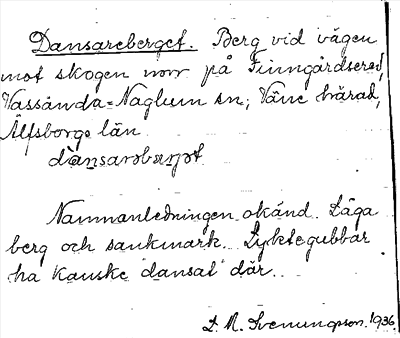 Dansareberget. Berg vid vägen
mot skogen norr på Finngårdsered,
Vassända=Naglum sn; Väne härad,
Älfsborgs län
Namnanledningen okänd. Låga
berg och sankmark. Lyktegubbar
ha kanske "dansat" där.
L. M. Svenungsson. 1936